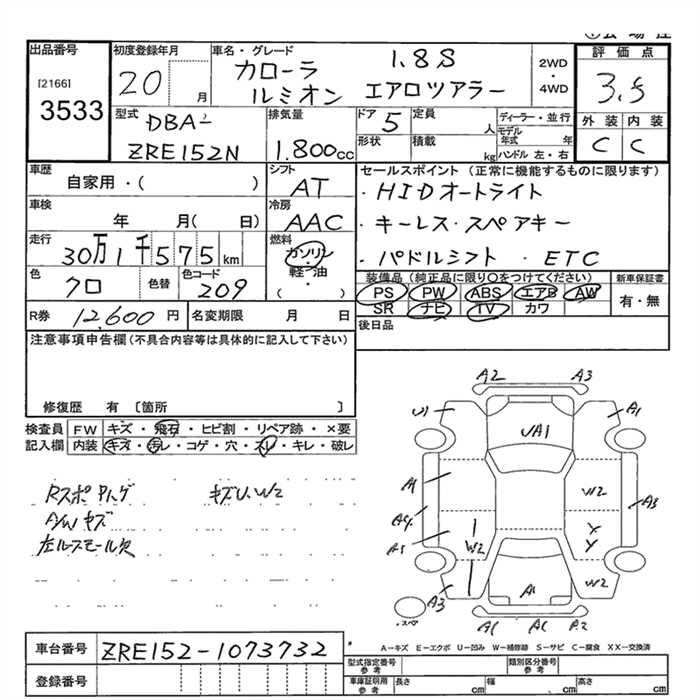 出品番号
[2166]
3533
初度登録年月
20
月
車名・グレード
カローラ
ルミオン
1.8S
エアロツアラー
2WD
・
4WD
評価点
3.5
外装 内装
C C
型式
DBA-
ZRE152N
排気量
1.800cc
ドア
5
定員
人
ディーラー・並行
モデル年式
年
形状
積載
kg
ハンドル 左・右
車歴
自家用・( )
シフト
AT
セールスポイント (正常に機能するものに限ります)
・HIDオートライト
・キーレス・スペアキー
・パドルシフト・ETC
車検
年 月( 日)
冷房
AAC
走行
30万1千575km
燃料
ガソリン
軽油
( )
色
クロ
色替
色コード
209
装備品(純正品に限り○をつけてください)
PS PW ABS エアB AW
SR ナビ TV カワ
新車保証書
有・無
R券
12,600円
名変期限 月 日
後日品
注意事項申告欄(不具合内容等は具体的に記入して下さい)
修復歴 有 〔箇所 〕
検査員 FW キズ・飛石・ヒビ割・リペア跡・×要
記入欄 内装 キズ・汚レ・コゲ・穴・スレ・キレ・破レ
Rスポ
キズU.W2
A/Wキズ
A2 A3
U1 A1
UA1
A1 W2 A3
W2 Y
Y
A3 W2
・スペア
A2
車台番号
ZRE152-1073732
登録番号
A-キズ E-エクボ U-凹み W-補修跡 S-サビ C-腐食 XX-交換済
型式指定番号
参考
類別区分番号
参考
車庫証明用
参考
長さ cm 幅 cm 高さ cm